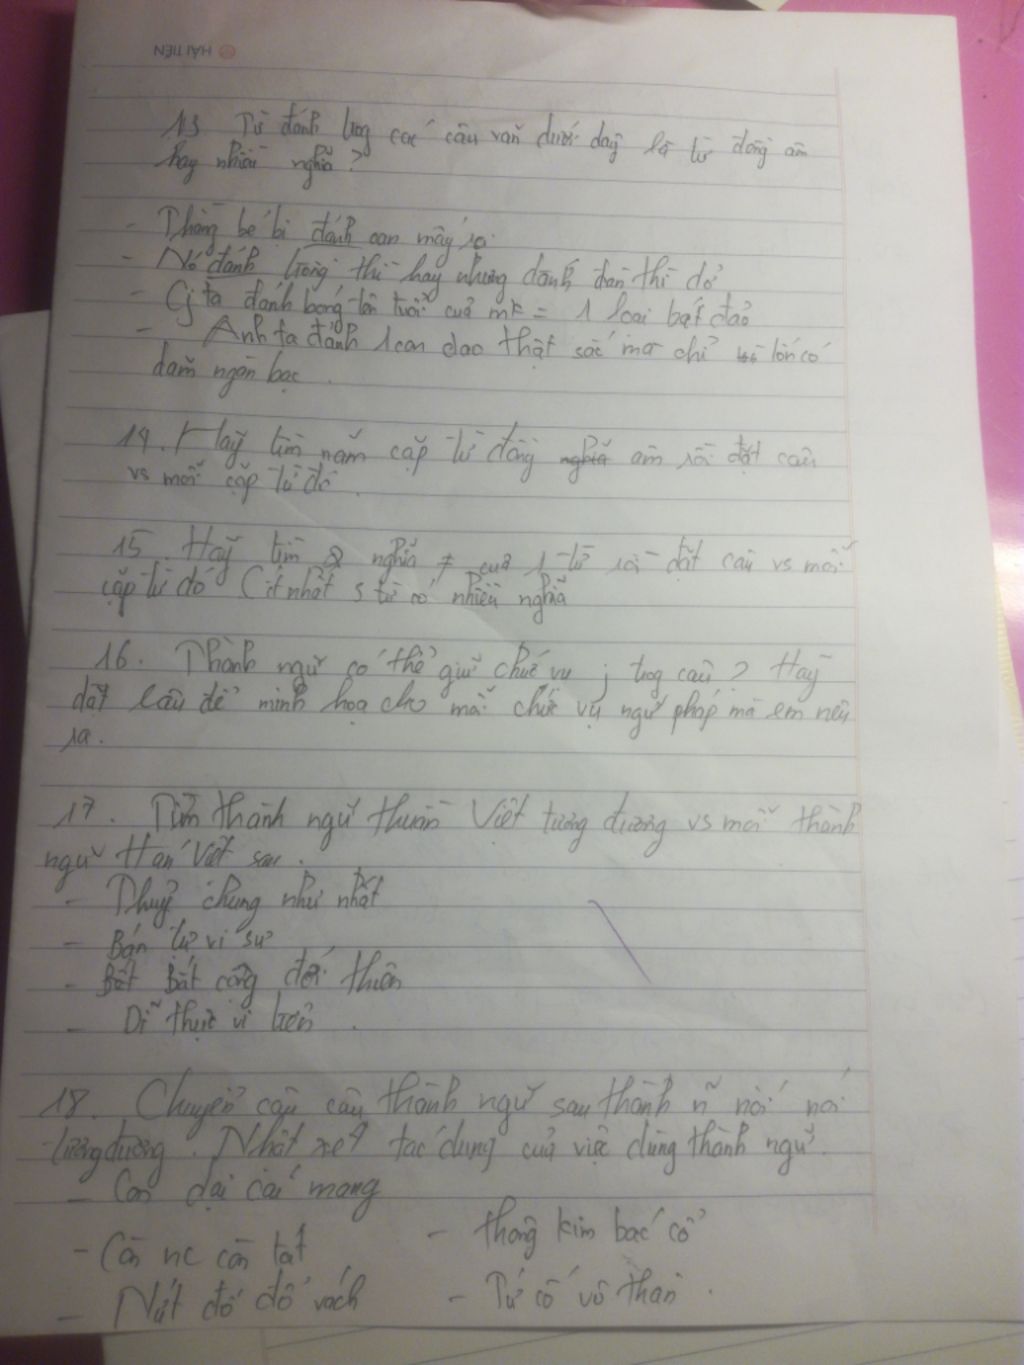 HẢI TIẾN
13 Từ đánh trog các câu văn dưới đây là từ đồng âm
hay nhiều nghĩa?
- Thằng bé bị đánh oan mấy roi
- Nó đánh trống thì hay nhưng đánh đàn thì dở
- Cj ta đánh bóng tên tuổi của mk = 1 loại bát đảo
- Anh ta đánh 1 con dao thật sắc mà chỉ tốn có
dăm ngàn bạc.
14. Hãy tìm năm cặp từ đồng nghĩa âm rồi đặt câu
vs mỗi cặp từ đó.
15. Hãy tìm 2 nghĩa ≠ của 1 từ rồi đặt câu vs mỗi
cặp từ đó (ít nhất 5 từ có nhiều nghĩa
16. Thành ngữ có thể giữ chức vụ j trog câu? Hãy
đặt câu để minh họa cho mỗi chức vụ ngữ pháp mà em nêu
ra.
17. Tìm thành ngữ thuần Việt tương đương vs mỗi thành
ngữ Hán Việt sau.
- Thuỷ chung như nhất
- Bán tự vi sư
- Bất Bất cộng đới thiên
- Dĩ thực vi tiên.
18. Chuyển các câu thành ngữ sau thành ~ nói
tương đương. Nhật xét tác dụng của việc dùng thành ngữ.
- Con dại cái mang
- thông kim bác cổ
- Còn nc còn tát
- Nứt đố đổ vách
- Tứ cố vô thân.